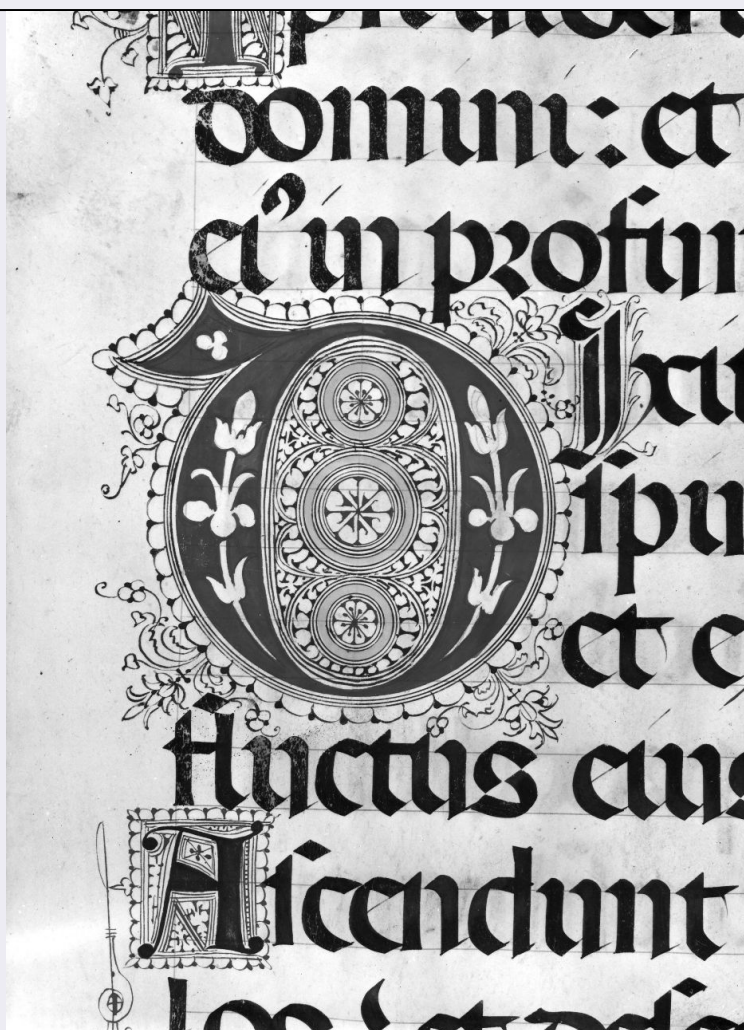 domini: et
ei' in profun
Dixit
ſpu
et e
fluctus eius
Aſcendunt